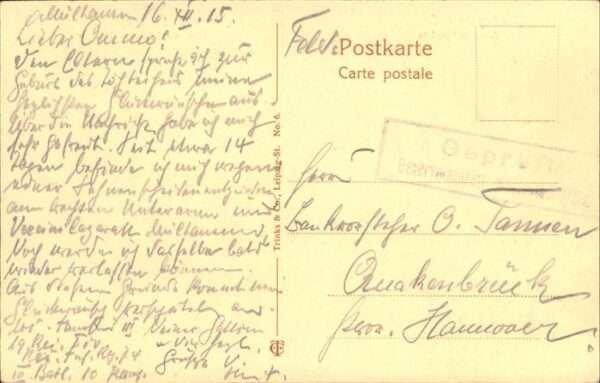 Mülhausen 16. XII. 15.
Lieber Onno!
Den Eltern spreche ich zur
Geburt des Töchterchens meine
herzlichsten Glückwünsche aus.
Über die Nachricht habe ich mich
sehr gefreut. Seit etwa 14
Tagen befinde ich mich wegen
einer Sehnenscheidenentzündung
am rechten Unterarm im
Vereinslazarett Mülhausen.
Noch werde ich dasselbe bald
wieder verlassen können.
Aus diesem Grunde kommt mein
Glückwunsch verspätet an.
19. Res. Div.
Res. Inf. Rg. 74
III Batl. 10 Komp.
Viele herzl.
Grüße
Feld-Postkarte
Carte postale
Trinks & Co., Leipzig-St. No. 6.
Geprüft
Herrn
Bankvorsteher O. Tannen
Quakenbrück
Prov. Hannover